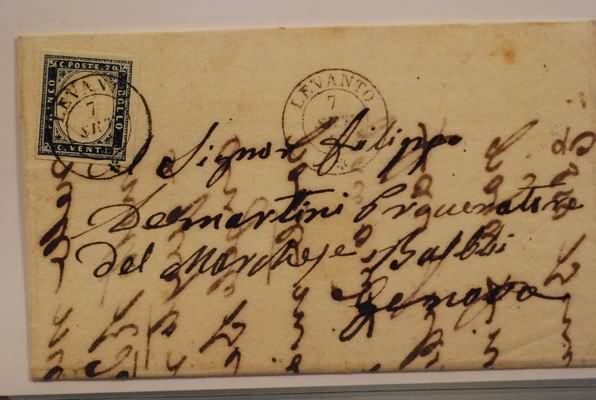 C. POSTE. 20
FRANCO
BOLLO
C. VENTI.
LEVAN
7
LEVANTO
7
Al Signor Filippo
Demartini Procuratore
del Marchese Balbi
Genova